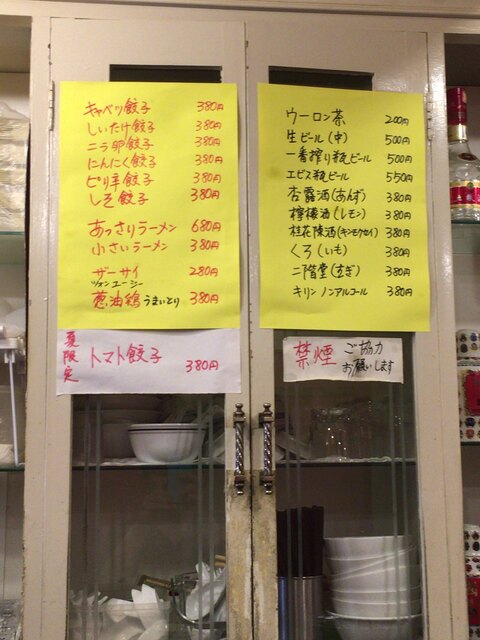 キャベツ餃子 380円
しいたけ餃子 380円
ニラ卵餃子 380円
にんにく餃子 380円
ピリ辛餃子 380円
しそ餃子 380円
あっさりラーメン 680円
小さいラーメン 380円
ザーサイ 280円
ツォンユージー
葱油鶏 うまいとり 380円
夏限定
トマト餃子 380円
ウーロン茶 200円
生ビール(中) 500円
一番搾り瓶ビール 500円
エビス瓶ビール 550円
杏露酒(あんず) 380円
檸檬酒(レモン) 380円
桂花陳酒(キンモクセイ) 380円
くろ(いも) 380円
二階堂(むぎ) 380円
キリン ノンアルコール 380円
禁煙 ご協力
お願いします